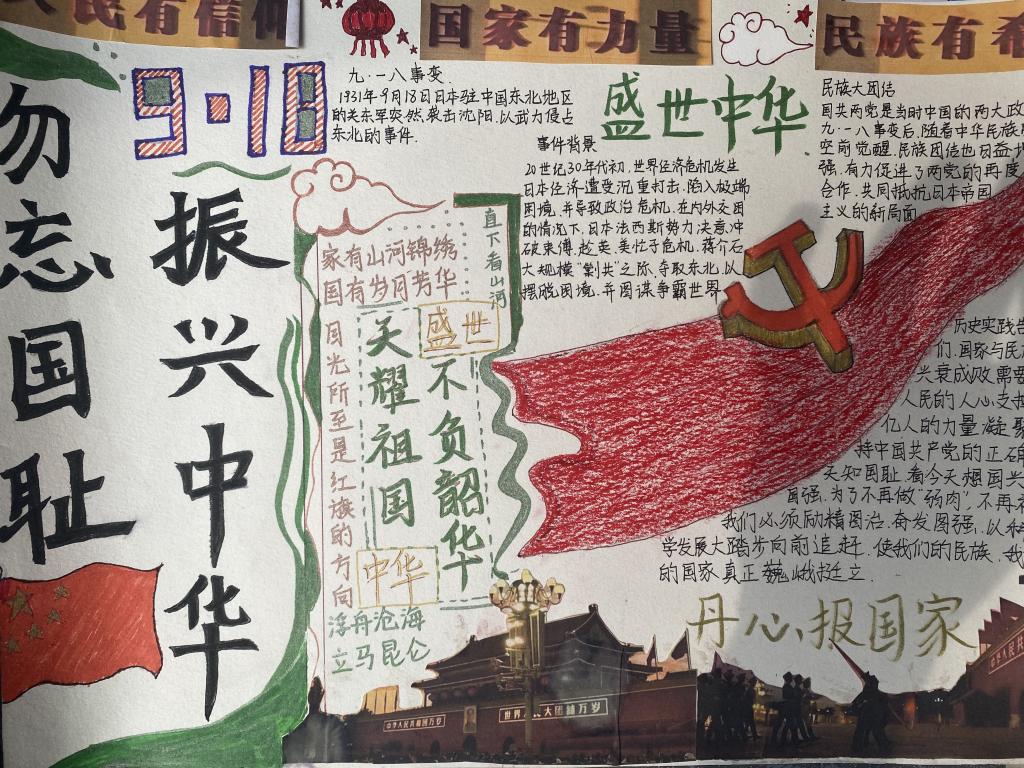 人民有信仰
国家有力量
民族有希
勿忘国耻
振兴中华
9·18
九·一八事变
1931年9月18日日本驻中国东北地区
的关东军突然袭击沈阳,以武力侵占
东北的事件.
盛世中华
事件背景
20世纪30年代初,世界经济危机发生
日本经济遭受沉重打击,陷入极端
困境,并导致政治危机,在内外交困
的情况下,日本法西斯势力决意冲
破束缚,趁英、美忙于危机,蒋介石
大规模“剿共”之际、夺取东北,以
摆脱困境,并图谋争霸世界
民族大团结
国共两党是当时中国的两大政
九·一八事变后,随着中华民族
空前觉醒,民族团结也日益
强,有力促进了两党的再度
合作,共同抵抗日本帝国
主义的新局面
直下看山河
家有山河锦绣
国有岁月芳华
目光所至是红旗的方向
关耀祖国
中华
盛世
不负韶华
浮舟沧海
立马昆仑
历史实践告
们,国家与民
兴衰成败需要
人民的人心支
亿人的力量凝聚
持中国共产党的正确
天知国耻,看今天想国兴
自强,为了不再做“弱肉”,不再
我们必须励精图治,奋发图强,以科
学发展大踏步向前追赶.使我们的民族,我
的国家真正巍峨挺立.
丹心报国家
中华人民共和国万岁
世界人民大团结万岁
中华人民共